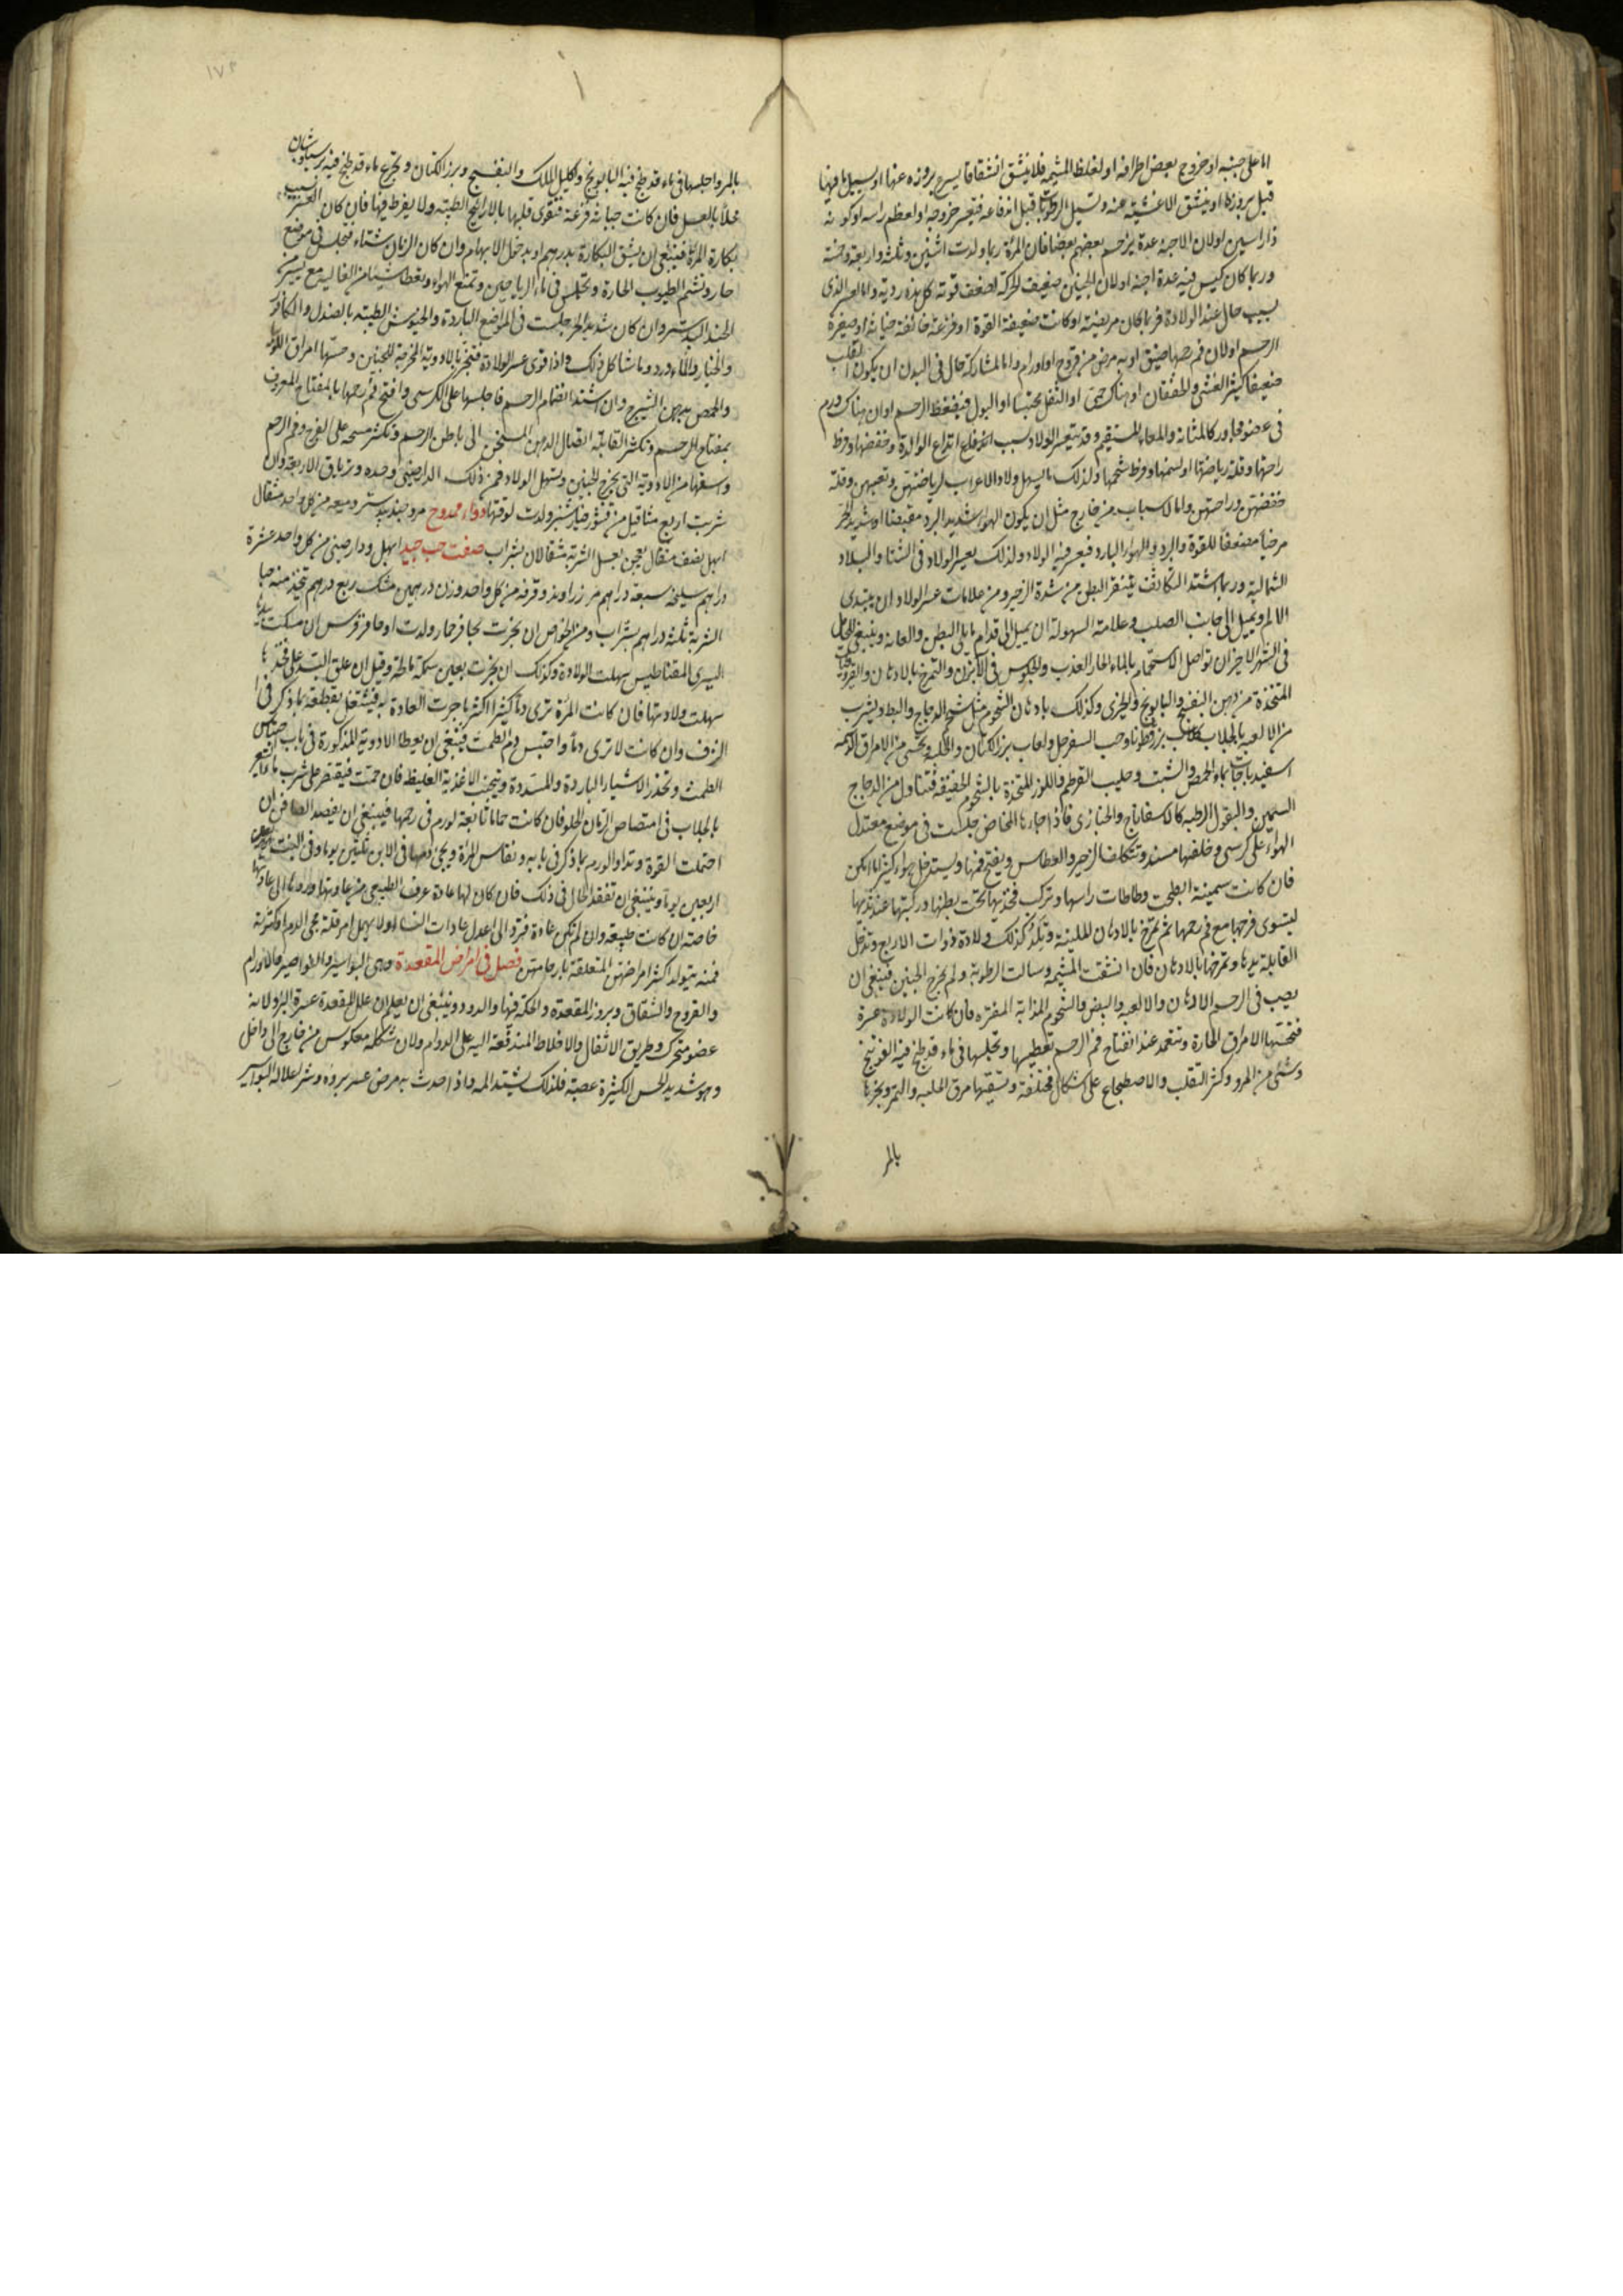 اما على جنبه او خروج بعض اطرافه او لغلظ المشيمه فلا ينشق انشقاقا يسرع بروزه عنها او سبيل ما فيها
قبل بروزه او ينشق الاغشيه عنه وتسيل الرطوبات قبل اندفاعه فيعسر خروجه او لعظم راسه او كونه
ذا راسين او لان الاجنه عدة يزحم بعضهم بعضا فان المرأة ربما ولدت اثنين وثلثه واربعه وخمسة
وربما كان كيس فيه عدة اجنه او لان الجنين ضعيف الحركة لضعف قوته كل هذه رديه واما العسر الذى
بسبب حال عند الولادة فربما كان مريضة او كانت ضعيفة القوة او فزعة خائفة جبانة او صغيرة
الرحم او لان فم رحمها ضيق او به مرض من قروح او اورام واما لمشاركة حال فى البدن ان يكون القلب
ضعيفا كثير الغشى والخفقان او هناك حمى او الثفل محتبسا او البول فيضغط الرحم او ان هناك ورم
فى عضو مجاور كالمثانة والمعاء المستقيم وقد يتعسر الولاد بسبب اتداع الوالدة وخفضها وفرط
راحتها وقلة رياضتها او لسمنها وفرط شحمها ولذلك ما يسهل ولاد الاعراب لرياضتهن وتعبهن وقلة
خفضهن وراحتهن واما الاسباب من خارج مثل ان يكون الهواء شديد البرد مقبضا او شديد الحر
مرخيا مضعفا للقوة والبرد والهواء البارد فيعسر فيه الولاد ولذلك يعسر الولاد فى الشتا والبلاد
الشماليه وربما اشتد التكاثف ينفتق البطن من شدة الزحير ومن علامات عسر الولاد ان يبتدى
الالم ويميل الى جانب الصلب وعلامة السهولة ان يميل الى قدام ما يلى البطن والعانه وينبغى للحامل
فى الشهر الاخير ان تواصل الاستحمام بالماء الحار العذب والجلوس فى الابزن والتمرخ بالادهان والقيروطيات
المتخذة من دهن البنفسج والبابونج والخيرى وكذلك بادهان الشحوم مثل شحم الدجاج والبط ويشرب
من الالعبه بالجلاب كلعاب بزر قطونا وحب السفرجل ولعاب بزر الكتان والحلبه وتحسى من الامراق الدسمه
اسفيدباجات بماء الحمص والشبت وحليب القرطم واللوز المتخذة بالشحوم الخفيفة فتتناول من الدجاج
السمين والبقول الرطبه كالاسفاناج والخبازى فاذا جاءها المخاض جلست فى موضع معتدل
الهواء على كرسى وخلفها مسند وتتكلف الزحير والعطاس ويفتح فمها ويستدخل هواء كثيرا ما امكن
فان كانت سمينة انبطحت وطاطات راسها وترك فخذيها تحت بطنها وركبتها عند ثديها
ليستوى فرجها مع فم رحمها ثم تمرخ بالادهان الملينة وكذلك ولادة ذوات الاربع وتدخل
القابلة يدها وتمرخها بالادهان فان انشقت المشيمه وسالت الرطوبة ولم يخرج الجنين فينبغى ان
يصب فى الرحم الادهان والالعبه والبيض والشحوم المذابة المفتره فان كانت الولادة عسرة
فتحسيها الامراق الحارة وتعمد عند انفتاح فم الرحم تعطيها وتجلسها فى ماء قد طبخ فيه الفوتنج
وشئ من المر وكثر التقلب والاضطجاع على اشكال مختلفة وتسقيها مرق الحلبه والتمر وبخرها
بالمر
١٧٣
بالمر واجلسها فى ماء قد طبخ فيه البابونج واكليل الملك والبنفسج وبزر الكتان وتجرع ماء قد طبخ فيه برسياوشان
محلاً بالعسل فان كانت جبانة فزعة فتقوى قلبها بالارايح الطيبه ولا يفرط فيها فان كان العسر بسبب
بكارة المرأة فينبغى ان يشق البكارة بدرهم او يدخل الابهام وان كان الزمان شتاء فتجلس فى موضع
حار وتشم الطيوب الحارة وتجلس فى ماء الرياحين وتمنع الهواء وتعطى شيئا من الغاليه مع يسير من
الجندبيدستر وان كان شديد الحر جلست فى المواضع الباردة والخيوش الطيبه بالصندل والكافور
والخيار والماء ورد وما شاكل ذلك واذا قوى عسر الولادة فتبخر بالادوية المخرجة للجنين وحسيها امراق اللوبيا
والحمص بدهن الشيرج وان اشتد انضمام الرحم فاجلسها على الكرسى وافتح فم رحمها بالمفتاح المعروف
بمفتاح الرحم وتكثر القابلة ايصال الدهن المسخن الى باطن الرحم وتكثر مسحه على الفرج وفم الرحم
واسقها من الادوية التى يخرج الجنين وتسهل الولاد فمن ذلك الدارصينى وحده وترياق الاربعه وان
شربت اربع مثاقيل من قشور خيار شنبر ولدت لوقتها دواء ممدوح مر وجندبيدستر وميعه من كل واحد مثقال
ابهل نصف مثقال يعجن بعسل الشربة مثقالان بشراب صفت حب جيد ابهل ودارصينى من كل واحد عشرة
دراهم سليخه سبعة دراهم مر زراوند وقرفه من كل واحد وزن درهمين مسك ربع درهم تتخذ منه حبا
الشربة ثلثه دراهم بشراب ومن الخواص ان بخرت بحافر حمار ولدت او حافر فرس ان مسكت بيدها
اليسرى المقناطيس سهلت الولادة وكذلك ان بخرت بعين سمكة مالحة وقيل ان علق البسد على فخذها
سهلت ولادتها فان كانت المرأة ترى دماً كثيرا اكثر ما جرت العادة به فيشتغل بقطعه بما ذكر فى
النزف وان كانت لا ترى دماً واحتبس دم الطمث فينبغى ان يعطا الادوية المذكورة فى باب احتباس
الطمث وتحذر الاشياء الباردة والمسددة وتجتنب الاغذية الغليظه فان حمت فيقتصر على شرب ماء الشعير
بالجلاب فى امتصاص الرمان الحلو فان كانت حماها تابعة لورم فى رحمها فينبغى ان يفصد الصافن ان
احتملت القوة وتداوا الورم بما ذكر فى بابه ونفاس المرأة ويجئ دمها فى الابن ثلثين يوما وفى البنت
اربعين يوما وينبغى ان تفقد الحال فى ذلك فان كان لها عادة عرفت الطبيعى من عادتها وردها الى عادتها
خاصة ان كانت طبيعه وان لم تكن عادة فترد الى اعدل عادات النساء ولا يهمل امر قلة مجئ الدم او كثرته
فمنه يتولد اكثر امراضهن المتعلقة بارحامهن فصل فى امراض المقعدة وهى البواسير والنواصير والاورام
والقروح والشقاق وبروز المقعدة والحكة فيها والدود وينبغى ان يعلم ان علل المقعدة عسرة البرو لانه
عضو متحرك وطريق الاثفال والاخلاط المندفعة اليه على الدوام ولان شكله معكوس من خارج الى داخل
وهو شديد الحس لكثيرة عصبه فلذلك يشتد المه واذا حدث به مرض عسر بروه وشر علاله البواسير